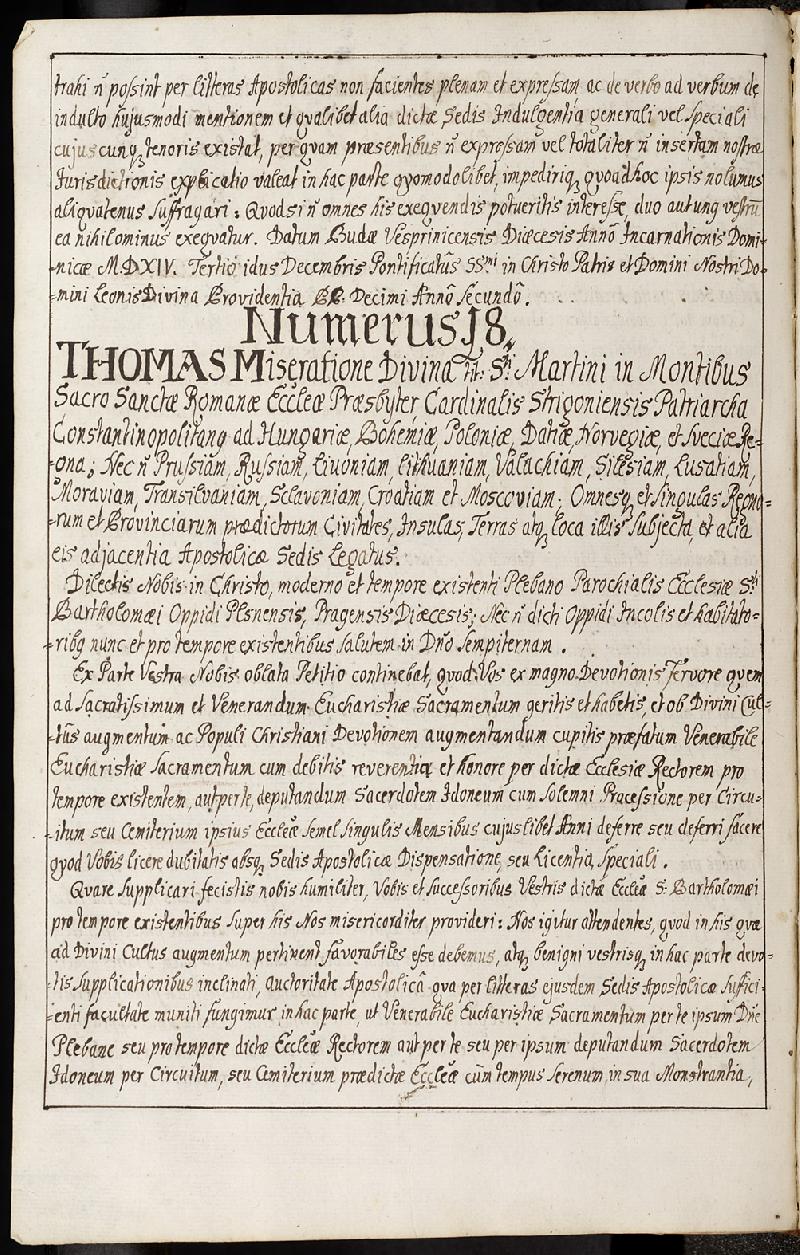 trahi ñ possint per litteras Apostolicas non facientes plenam et expressam ac de verbo ad verbum de
indulto hujusmodi mentionem et qvalibet alia dictæ Sedis Indulgentia generali vel speciali
cujuscunq, tenoris existat, per qvam præsentibus ñ expressam vel totaliter ñ insertam nostræ
Jurisdictionis explicatio valeat in hac parte qvomodolibet, impediriq, qvoad hoc ipsis nolumus
aliqvatenus suffragari: Qvodsi ñ omnes his exeqvendis potueritis interesse, duo aut unq vestrũ
ea nihilominus exeqvatur. Datum Budæ Vesprinicensis Diæcesis Anno Incarnationis Domi-
-nicæ M.D.XIV. Tertio idus Decembris Pontificatus SSmi in Christo Patris et Domini Nostri Do-
-mini Leonis Divina Providentia PP. Decimi Anno Secundo.
Numerus 18.
THOMAS Miseratione Divina Tit. Sti Martini in Montibus
Sacro Sanctæ Romanæ Eccleæ Præsbyter Cardinalis Strigoniensis Patriarcha
Constantinopolitanq ad Hungariæ, Bohemiæ, Poloniæ, Datiæ, Norvegiæ, et Sveciæ Re-
-gna; Nec ñ Prussiam, Russiam, Livoniam, Lithuaniam, Valachiam, Silesiam, Lusatiam,
Moraviam, Transilvaniam, Sclavoniam, Croatiam et Moscoviam; Omnesq, et Singulas Regno-
-rum et Provinciarum prædictorum Civitates, Insulas, Terras atq, Loca illis Subjecta, et alia
eis adjacentia Apostolicæ Sedis Legatus.
Dilectis Nobis in Christo, moderno et tempore existenti Plebano Parochialis Ecclesiæ Sti
Bartholomæi Oppidi Plsnensis, Pragensis Diæcesis; Nec ñ dicti Oppidi Incolis et habitato-
-ribq nunc et pro tempore existentibus salutem in Dño Sempiternam.
Ex Parte Vestra Nobis oblata Petitio continebat, qvod Vos ex magno Devotionis Fervore qvem
ad Sacratissimum et Venerandum Eucharistiæ Sacramentum geritis et habetis, et ob Divini Cul-
-tûs augmentum ac Populi Christiani Devotionem augmentandum cupitis præfatum Venerabile
Eucharistiæ Sacramentum cum debitis reverentia et honore per dictæ Ecclesiæ Rectorem pro
tempore existentem, aut per te, deputandum Sacerdotem Idoneum cum Solemni Processione per Circu-
-itum seu Cemiterium ipsius Eccleæ Semel Singulis Mensibus cujuslibet Anni deferre seu deferri facere
qvod Vobis licere dubitatis absq, Sedis Apostolicæ Dispensatione, seu Licentia, speciali.
Qvare supplicari fecistis nobis humiliter, Vobis et Successoribus Vestris dictæ Eccleæ S: Bartholomæi
pro tempore existentibus super his Nos misericorditer provideri: Nos igitur attendentes, qvod in his qvæ
ad Divini Cultus augmentum pertinent favorabiles esse debemus, atq, benigni vestrisq, in hac parte devo-
-tis supplicationibus inclinati, Auctoritate Apostolicâ qva per litteras ejusdem Sedis Apostolicæ Suffici-
-enti facultate muniti fungimur in hac parte, ut Venerabile Eucharistiæ Sacramentum per te ipsum Dñe
Plebane seu pro tempore dictæ Eccleæ Rectorem aut per te seu per ipsum deputandum Sacerdotem
Idoneum per Circuitum, seu Cemiterium prædictæ Eccleæ cũm tempus serenum in sua Monstrantia,